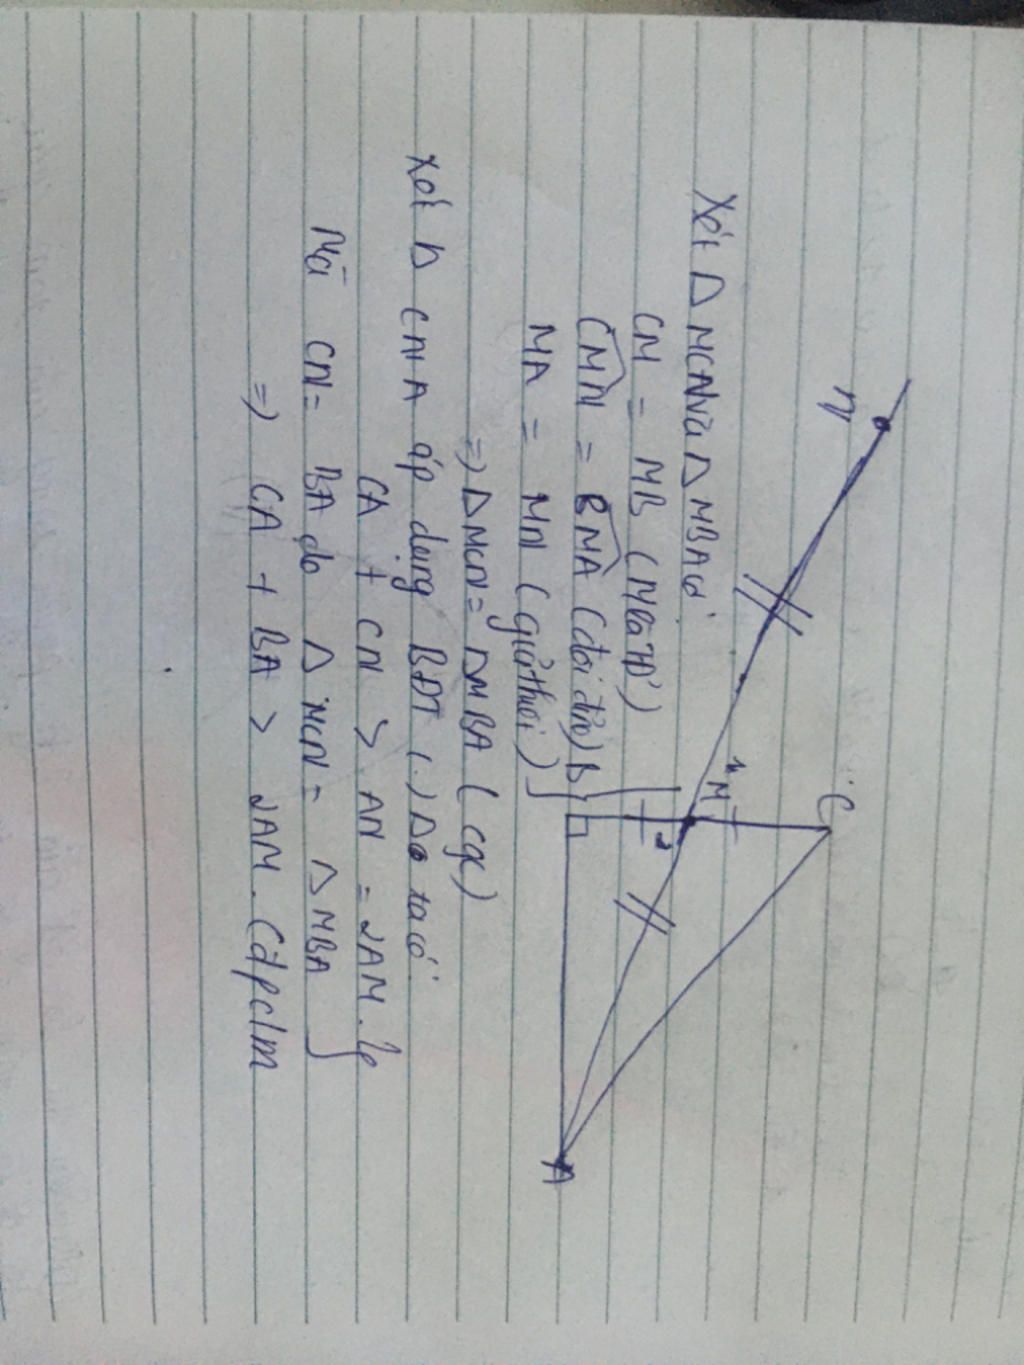 N
1
M
C
2
B
A
Xét Δ MCN và Δ MBA có:
CM = MB (M là TĐ)
CMN = BMA (đối đỉnh)
MA = MN (giả thiết)
=> ΔMCN = ΔMBA (cgc)
Xét Δ CNA áp dụng BĐT (.) Δ ta có:
CA + CN > AN = 2AM.
Mà CN = BA do Δ MCN = Δ MBA
=> CA + BA > 2AM. (đpcm